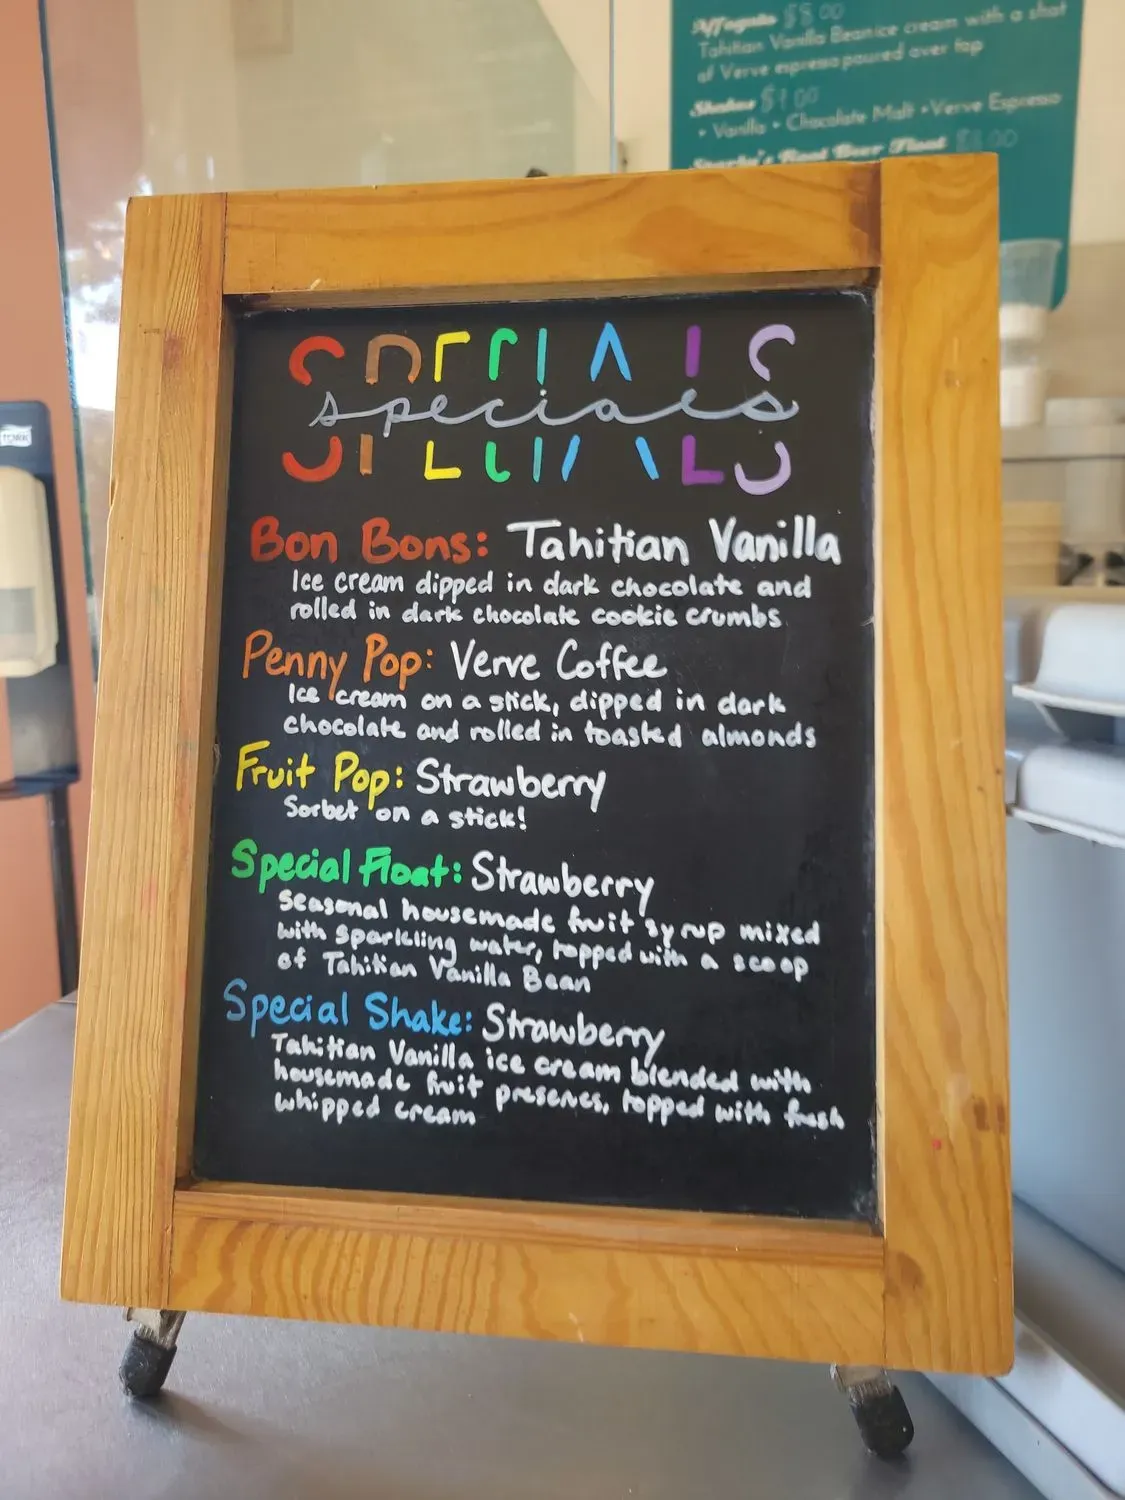 Affogato $8.00
Tahitian Vanilla Bean ice cream with a shot
of Verve espresso poured over top
Shakes $9.00
• Vanilla • Chocolate Malt • Verve Espresso
Root Beer Float $8.00
TORK
SPECIALS
specials
Bon Bons: Tahitian Vanilla
Ice cream dipped in dark chocolate and
rolled in dark chocolate cookie crumbs
Penny Pop: Verve Coffee
Ice cream on a stick, dipped in dark
chocolate and rolled in toasted almonds
Fruit Pop: Strawberry
Sorbet on a stick!
Special Float: Strawberry
Seasonal housemade fruit syrup mixed
with sparkling water, topped with a scoop
of Tahitian Vanilla Bean
Special Shake: Strawberry
Tahitian Vanilla ice cream blended with
housemade fruit preserves, topped with fresh
whipped cream